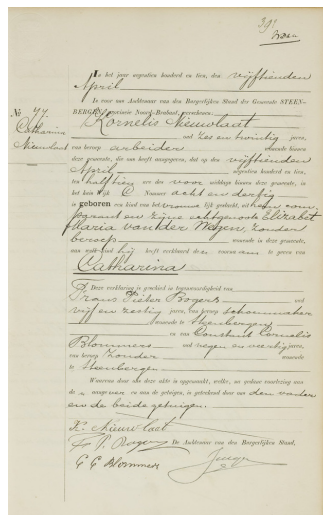 391
In het jaar negentien honderd en tien, den vijftienden
April
is voor ons Ambtenaar van den Burgerlijken Stand der Gemeente STEEN-
BERGEN, provincie Noord-Brabant, verschenen:
No 77
Kornelis Nieuwlaat
Catharina
Nieuwlaat
oud zes en twintig jaren,
van beroep arbeider wonende binnen
deze gemeente, die ons heeft aangegeven, dat op den vijftienden
April negentien honderd en tien,
ten half tien ure des voor middags binnen deze gemeente, in
het huis Wijk C Nummer acht en dertig
is geboren een kind van het vrouwelijk geslacht, uit hem com-
parant en zijne echtgenoote Elizabet
Maria van der Wegen, zonder
beroep wonende in deze gemeente,
aan welk kind hij heeft verklaard den voornaam te geven van
Catharina
Deze verklaring is geschied in tegenwoordigheid van
Frans Pieter Bogers oud
vijf en zestig jaren, van beroep schoenmaker
wonende te Steenbergen
en van Constant Cornelis
Blommers oud negen en veertig jaren,
van beroep zonder wonende
te Steenbergen
Waarvan door ons deze akte is opgemaakt, welke, na gedane voorlezing aan
de aangever en aan de getuigen, is geteekend door ons den vader
en de beide getuigen.
K. Nieuwlaat
Fr. P. Bogers De Ambtenaar van den Burgerlijken Stand,
C C Blommers